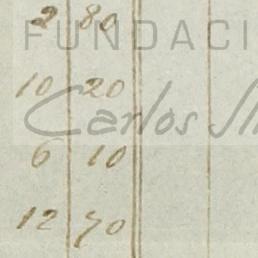 2 80
FUNDACI
10 20
Carlos
6 10
12 70